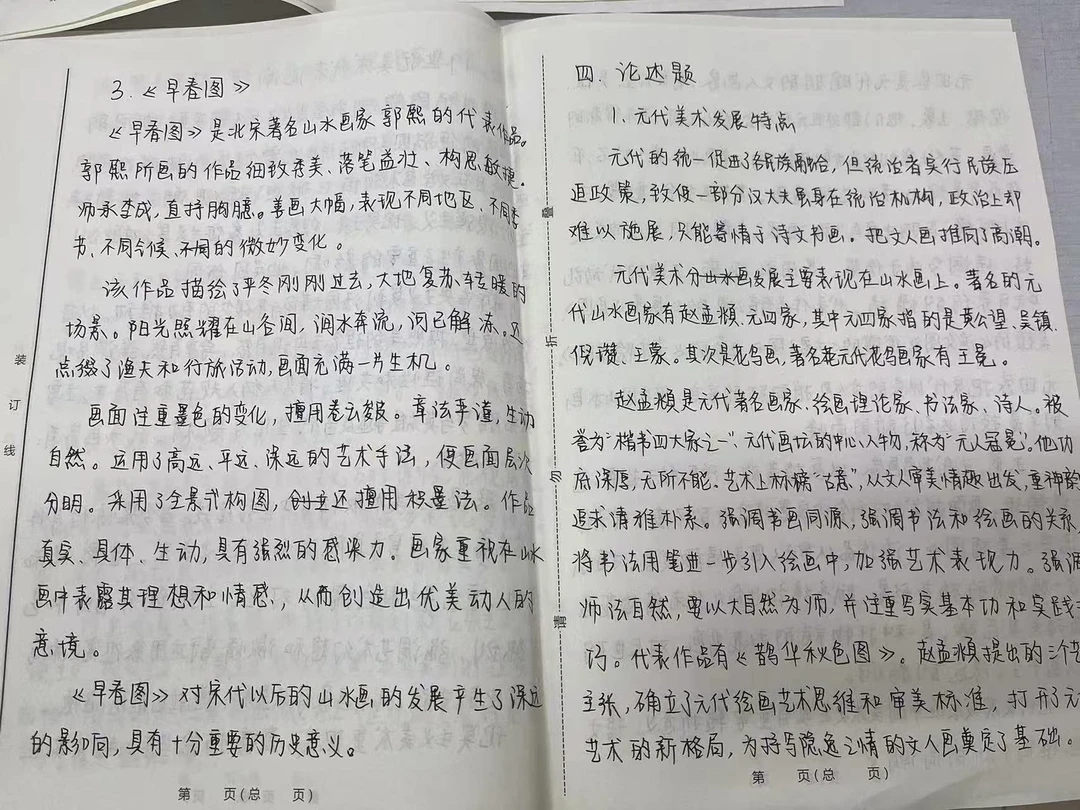 3.《早春图》
《早春图》是北宋著名山水画家郭熙的代表作品。
郭熙所画的作品细致秀美、落笔益壮、构思敏捷。
师承李成,直抒胸臆。善画大幅,表现不同地区、不同季
节、不同气候、不同的微妙变化。
该作品描绘了严冬刚刚过去,大地复苏、转暖的
场景。阳光照耀在山谷间,润水奔流,河已解冻。还
点缀了渔夫和行旅活动,画面充满一片生机。
画面注重墨色的变化,擅用卷云皴。章法严谨,生动
自然。运用了高远、平远、深远的艺术手法,使画面层次
分明。采用了全景式构图,创立还擅用积墨法。作品
真实、具体、生动,具有强烈的感染力。画家重视在山水
画中表露其理想和情感,从而创造出优美动人的
意境。
《早春图》对宋代以后的山水画的发展产生了深远
的影响,具有十分重要的历史意义。
第 页(总 页)
装
订
线
叠
折
勿
请
四.论述题
1.元代美术发展特点
元代的统一促进了各民族融合,但统治者实行民族压
迫政策,致使一部分汉大夫虽身在统治机构,政治上却
难以施展,只能寄情于诗文书画。把文人画推向了高潮。
元代美术分山水画发展主要表现在山水画上。著名的元
代山水画家有赵孟頫、元四家,其中元四家指的是黄公望、吴镇、
倪瓒、王蒙。其次是花鸟画,著名元代花鸟画家有王冕。
赵孟頫是元代著名画家、绘画理论家、书法家、诗人。被
誉为"楷书四大家之一"、元代画坛的中心人物,称为"元人冠冕"。他功
底深厚,无所不能、艺术上标榜"古意",从文人审美情趣出发,重神韵
追求清雅朴素。强调书画同源,强调书法和绘画的关系,
将书法用笔进一步引入绘画中,加强艺术表现力。强调
师法自然,要以大自然为师,并注重写实基本功和实践技
巧。代表作品有《鹊华秋色图》。赵孟頫提出的三个艺
主张,确立了元代绘画艺术思维和审美标准,打开了元
艺术的新格局,为抒写隐逸之情的文人画奠定了基础。
第 页(总 页)